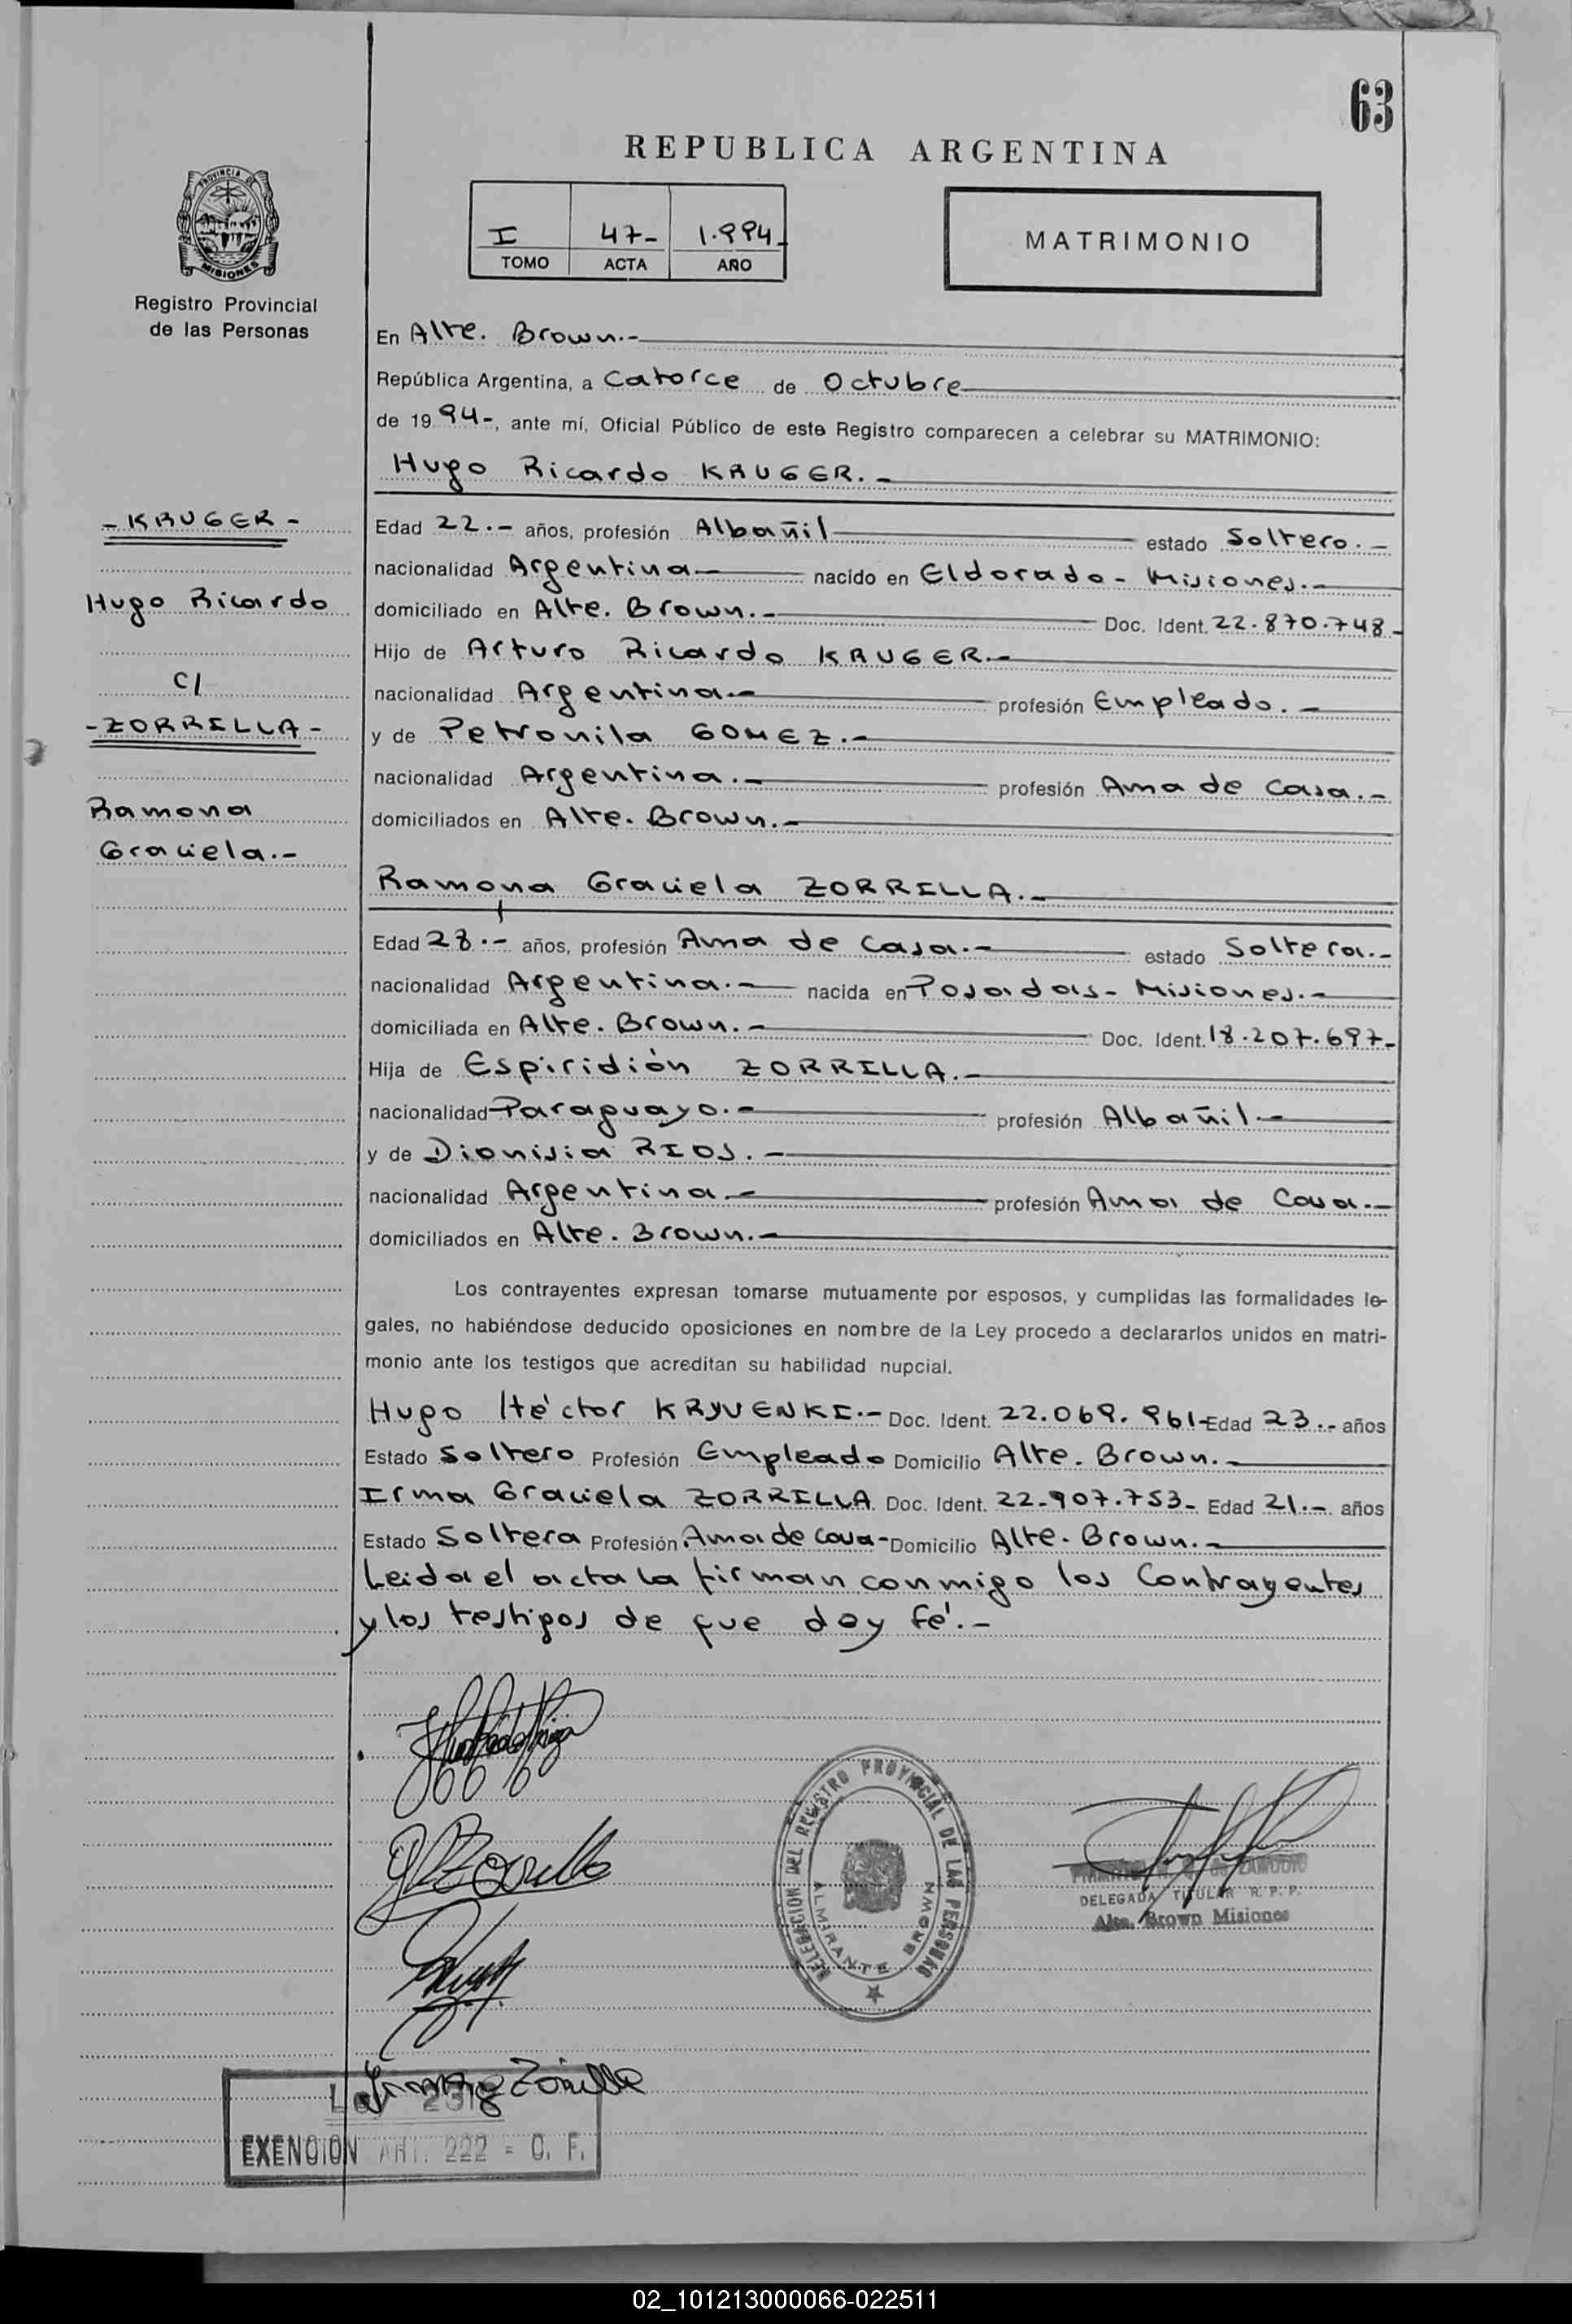 63
REPUBLICA ARGENTINA
I 47- 1.994-
TOMO ACTA AÑO
MATRIMONIO
PROVINCIA DE
MISIONES
Registro Provincial
de las Personas
En Alte. Brown.-
República Argentina, a Catorce de Octubre
de 19 94-, ante mí, Oficial Público de este Registro comparecen a celebrar su MATRIMONIO:
Hugo Ricardo KRUGER.-
-KRUGER-
Hugo Ricardo
c/
-ZORRILLA-
Ramona
Graciela.-
Edad 22.- años, profesión Albañil estado Soltero.-
nacionalidad Argentina- nacido en Eldorado- Misiones.-
domiciliado en Alte. Brown.- Doc. Ident. 22.870.748-
Hijo de Arturo Ricardo KRUGER.-
nacionalidad Argentina.- profesión Empleado.-
y de Petronila GOMEZ.-
nacionalidad Argentina.- profesión Ama de Casa.-
domiciliados en Alte. Brown.-
Ramona Graciela ZORRILLA.-
Edad 28.- años, profesión Ama de Casa.- estado Soltera.-
nacionalidad Argentina.- nacida en Posadas- Misiones.-
domiciliada en Alte. Brown.- Doc. Ident. 18.207.697-
Hija de Espiridión ZORRILLA.-
nacionalidad Paraguayo.- profesión Albañil.-
y de Dionisia RIOS.-
nacionalidad Argentina.- profesión Ama de Casa.-
domiciliados en Alte. Brown.-
Los contrayentes expresan tomarse mutuamente por esposos, y cumplidas las formalidades le-
gales, no habiéndose deducido oposiciones en nombre de la Ley procedo a declararlos unidos en matri-
monio ante los testigos que acreditan su habilidad nupcial.
Hugo Héctor KRYVENKI.- Doc. Ident. 22.069.961- Edad 23.- años
Estado Soltero Profesión Empleado Domicilio Alte. Brown.-
Irma Graciela ZORRILLA Doc. Ident. 22-907.753- Edad 21.- años
Estado Soltera Profesión Ama de Casa- Domicilio Alte. Brown.-
Leida el acta la firman conmigo los Contrayentes
y los testigos de que doy fé.-
DELEGACION DEL REGISTRO PROVINCIAL DE LAS PERSONAS
ALMIRANTE BROWN
DE ZAMUDIO
DELEGADA TITULAR R. P. P.
Alte. Brown Misiones
Irma G Zorrilla
Ley
EXENCION ART. 222 - C. F.
02_101213000066-022511